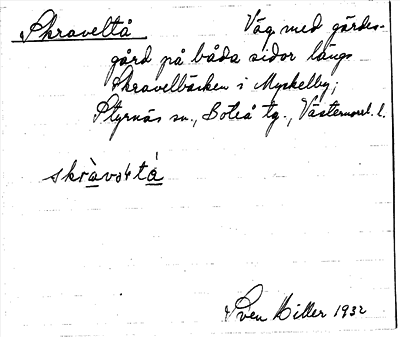 Skraveltå Väg med gärdes-
gård på båda sidor längs
Skravelbäcken i Myckelby,
Styrnäs sn., Boteå tg., Västernorrl. l.
skràvoɫtá
Sven Hiller 1932